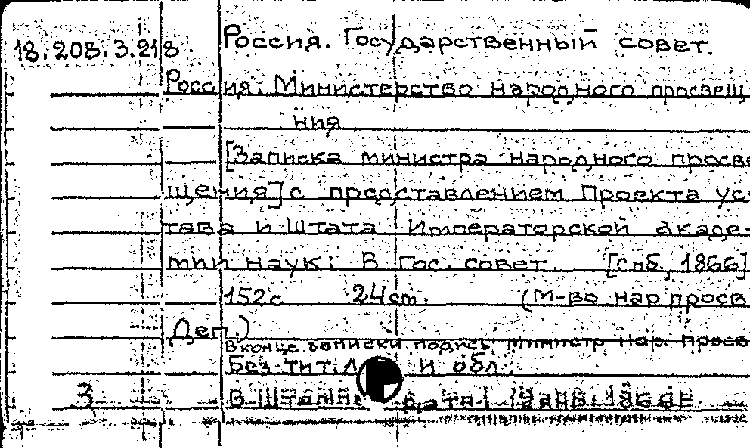 18.205.3.218. Россия. Государственный совет.
Россия. Министерство народного просвещ
ния
[Записка министра народного просве
щения] с представлением Проекта ус-
тава и Штата Императорской акаде-
мии наук: В Гос. совет. [спб, 1866]
152 с 24 cm. (М-во нар. просв.
Деп.)
В конце записки подпись: министр нар. просв
Без тит. л и обл.
3 В 1866